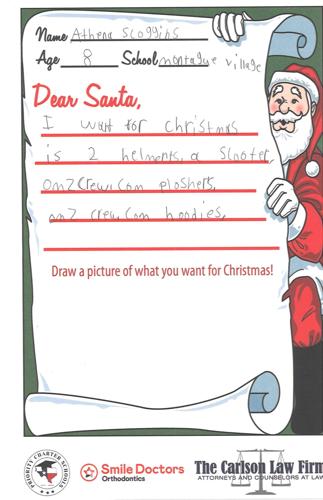 Name Athena Scoggins
Age 8 School montague village
Dear Santa,
I want for christmas
is 2 helments, a scooter,
onz crew.com ploshers,
onz crew.com hoodies,
Draw a picture of what you want for Christmas!
PRIORITY CHARTER SCHOOLS
Smile Doctors
Orthodontics
The Carlson Law Firm
ATTORNEYS AND COUNSELORS AT LAW